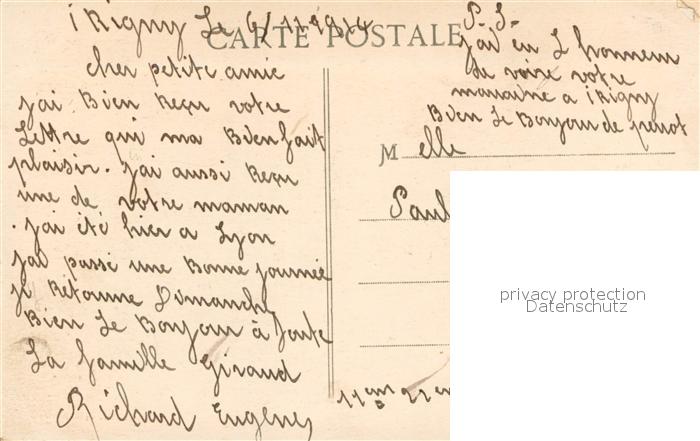 irigny Le 6/11 1914
CARTE POSTALE
cher petite amie
jai Bien Reçu votre
Lettre qui ma Bien fait
plaisir. jai aussi Reçu
une de votre maman
. jai été hier a Lyon
jai passé une Bonne journée
je Retourne Dimanche
Bien Le Bonjour à toute
La famille Giraud
Richard Eugene
P.S.
j'ai eu L honneur
de voire votre
marraine a irigny
Bien Le Bonjour de
M elle
Paul
privacy protection
Datenschutz